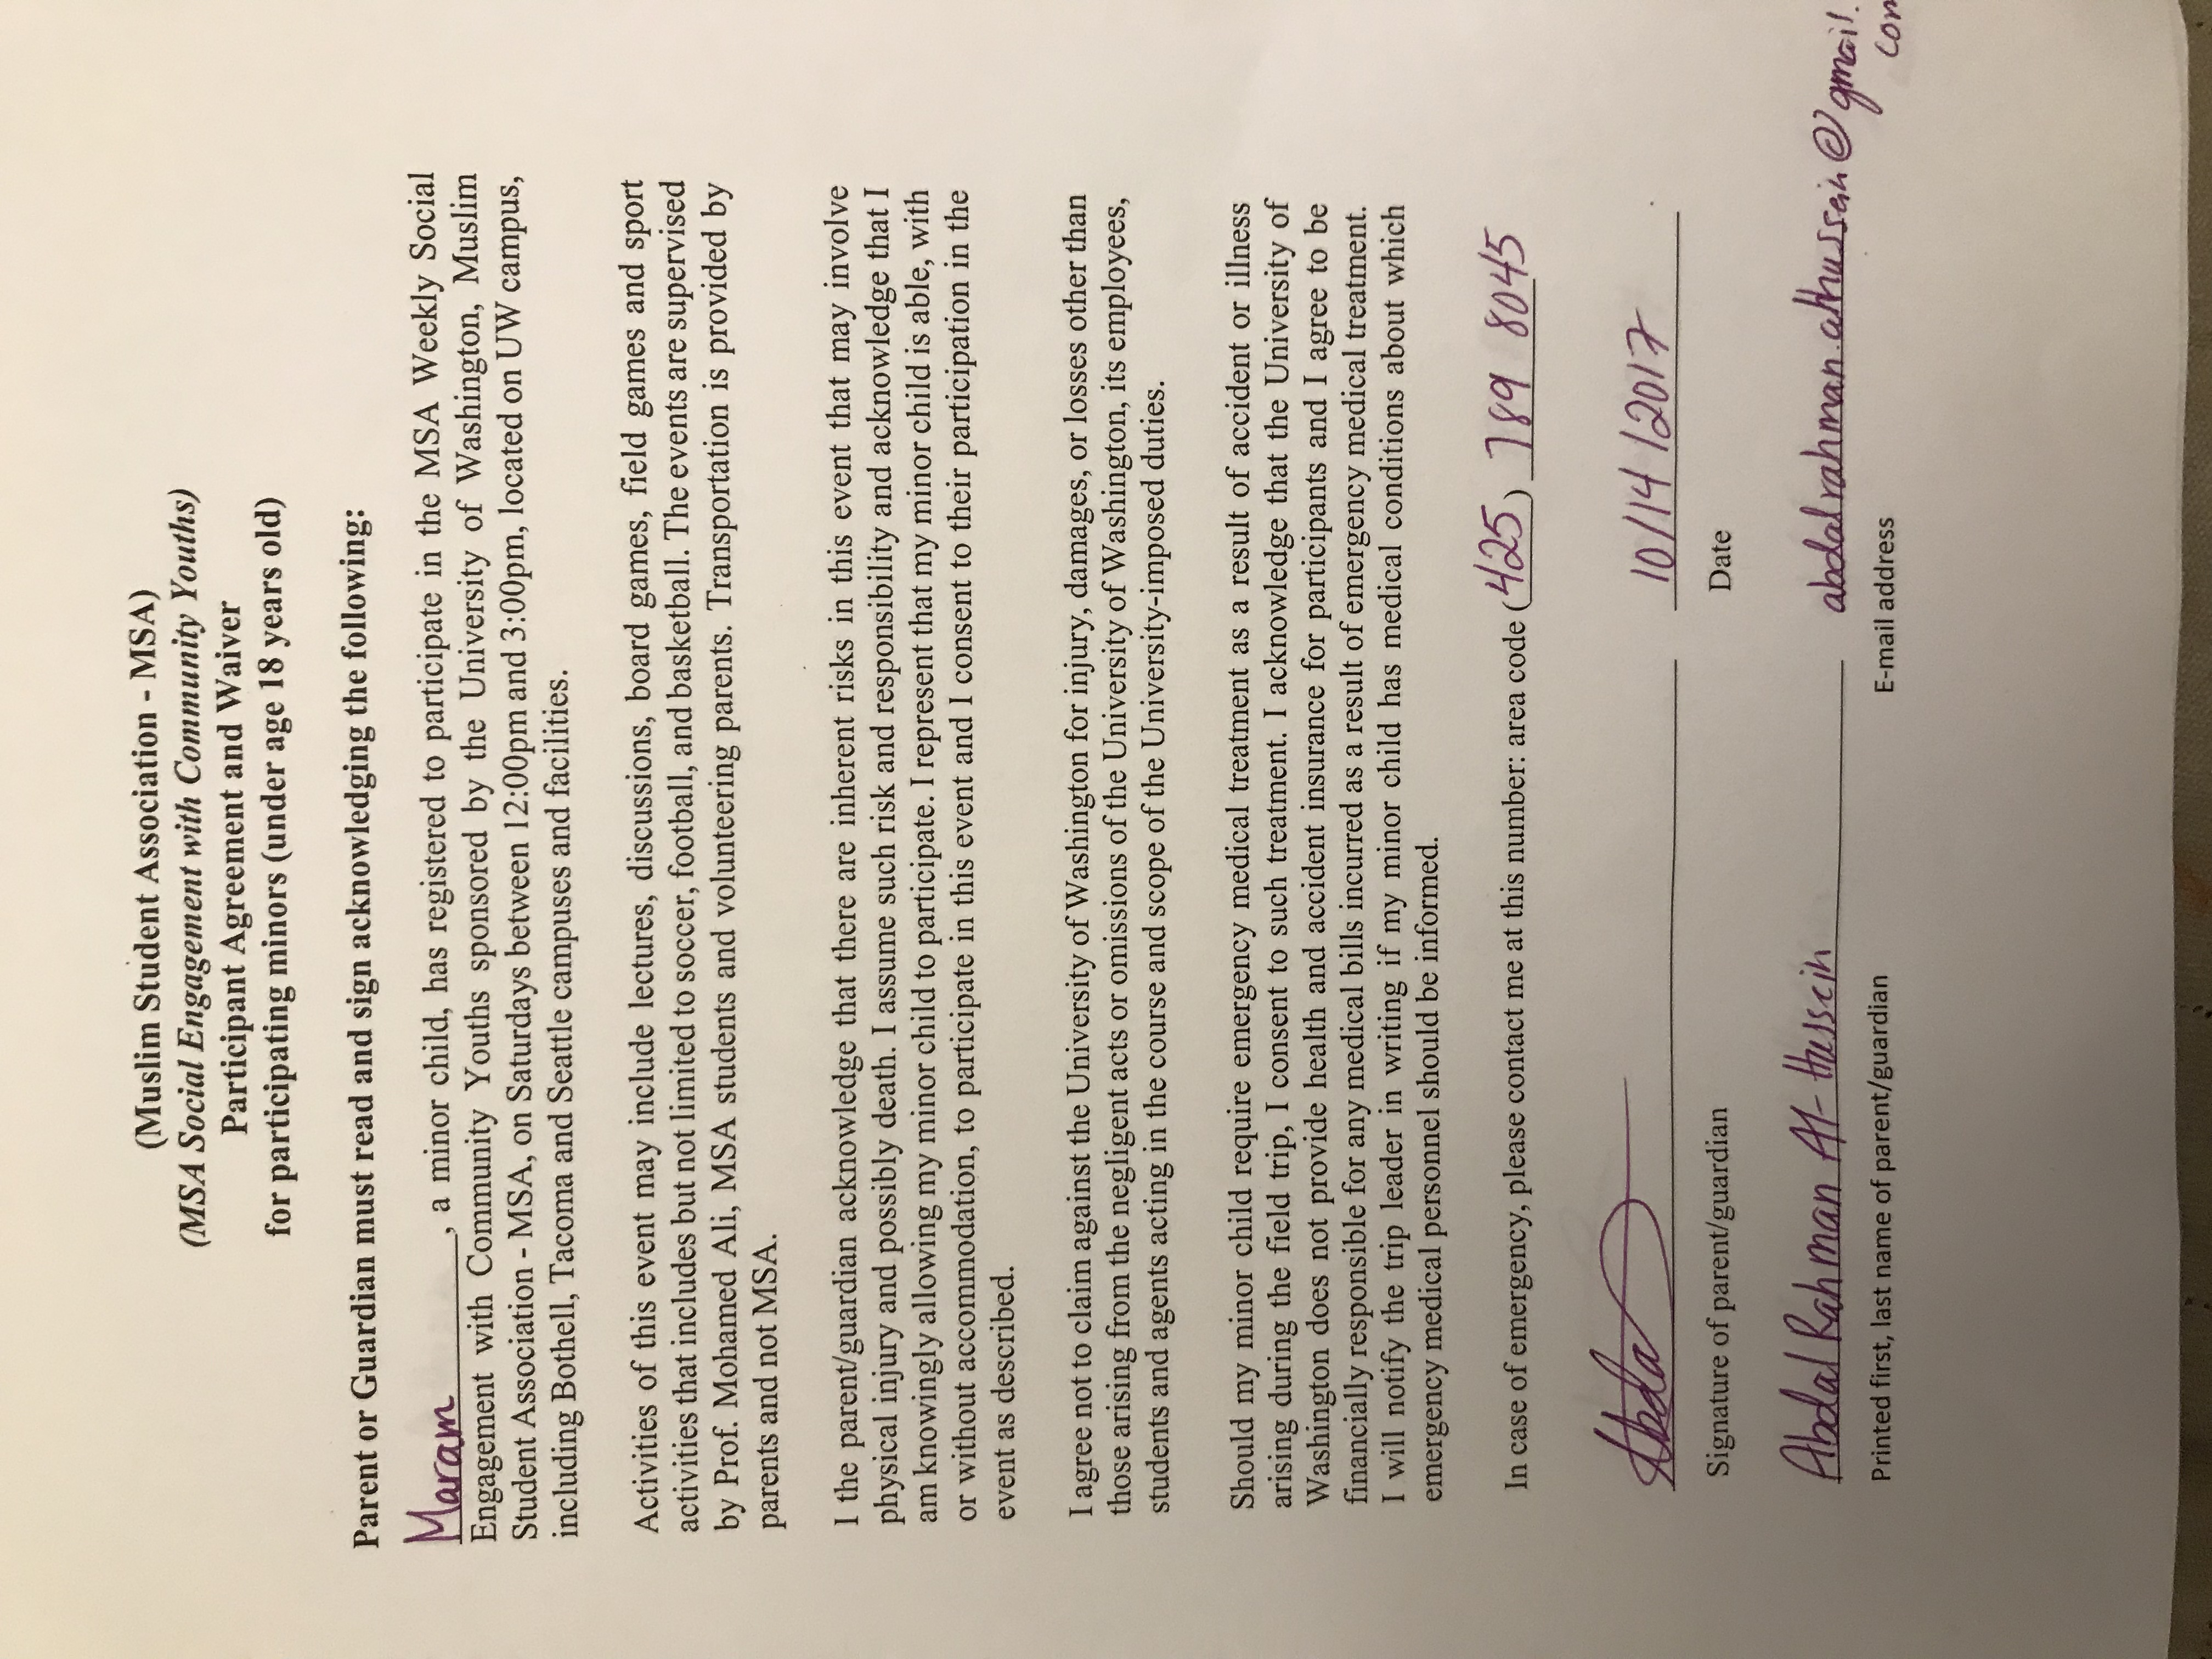 (Muslim Student Association - MSA)
(MSA Social Engagement with Community Youths)
Participant Agreement and Waiver
for participating minors (under age 18 years old)
Parent or Guardian must read and sign acknowledging the following:
Maram, a minor child, has registered to participate in the MSA Weekly Social
Engagement with Community Youths sponsored by the University of Washington, Muslim
Student Association - MSA, on Saturdays between 12:00pm and 3:00pm, located on UW campus,
including Bothell, Tacoma and Seattle campuses and facilities.
Activities of this event may include lectures, discussions, board games, field games and sport
activities that includes but not limited to soccer, football, and basketball. The events are supervised
by Prof. Mohamed Ali, MSA students and volunteering parents. Transportation is provided by
parents and not MSA.
I the parent/guardian acknowledge that there are inherent risks in this event that may involve
physical injury and possibly death. I assume such risk and responsibility and acknowledge that I
am knowingly allowing my minor child to participate. I represent that my minor child is able, with
or without accommodation, to participate in this event and I consent to their participation in the
event as described.
I agree not to claim against the University of Washington for injury, damages, or losses other than
those arising from the negligent acts or omissions of the University of Washington, its employees,
students and agents acting in the course and scope of the University-imposed duties.
Should my minor child require emergency medical treatment as a result of accident or illness
arising during the field trip, I consent to such treatment. I acknowledge that the University of
Washington does not provide health and accident insurance for participants and I agree to be
financially responsible for any medical bills incurred as a result of emergency medical treatment.
I will notify the trip leader in writing if my minor child has medical conditions about which
emergency medical personnel should be informed.
In case of emergency, please contact me at this number: area code (425) 789 8045
Abda 10/14/2017
Signature of parent/guardian Date
Abdal Rahman Al-Hussein abdalrahman.alhussein@gmail.
com
Printed first, last name of parent/guardian E-mail address